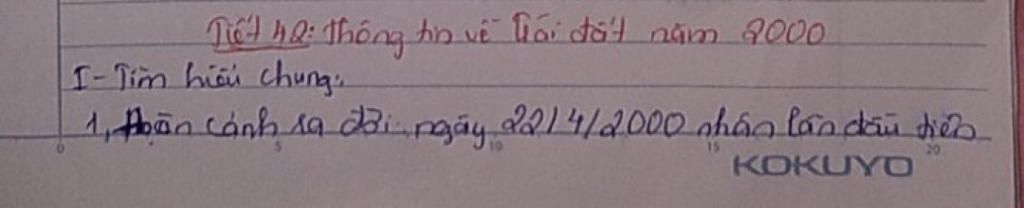 Tiết 42: Thông tin về Trái đất năm 2000
I- Tìm hiểu chung:
1, Hoàn cảnh ra đời: ngày 22/4/2000 nhân lần đầu tiên
0 5 10 15 20
KOKUYO